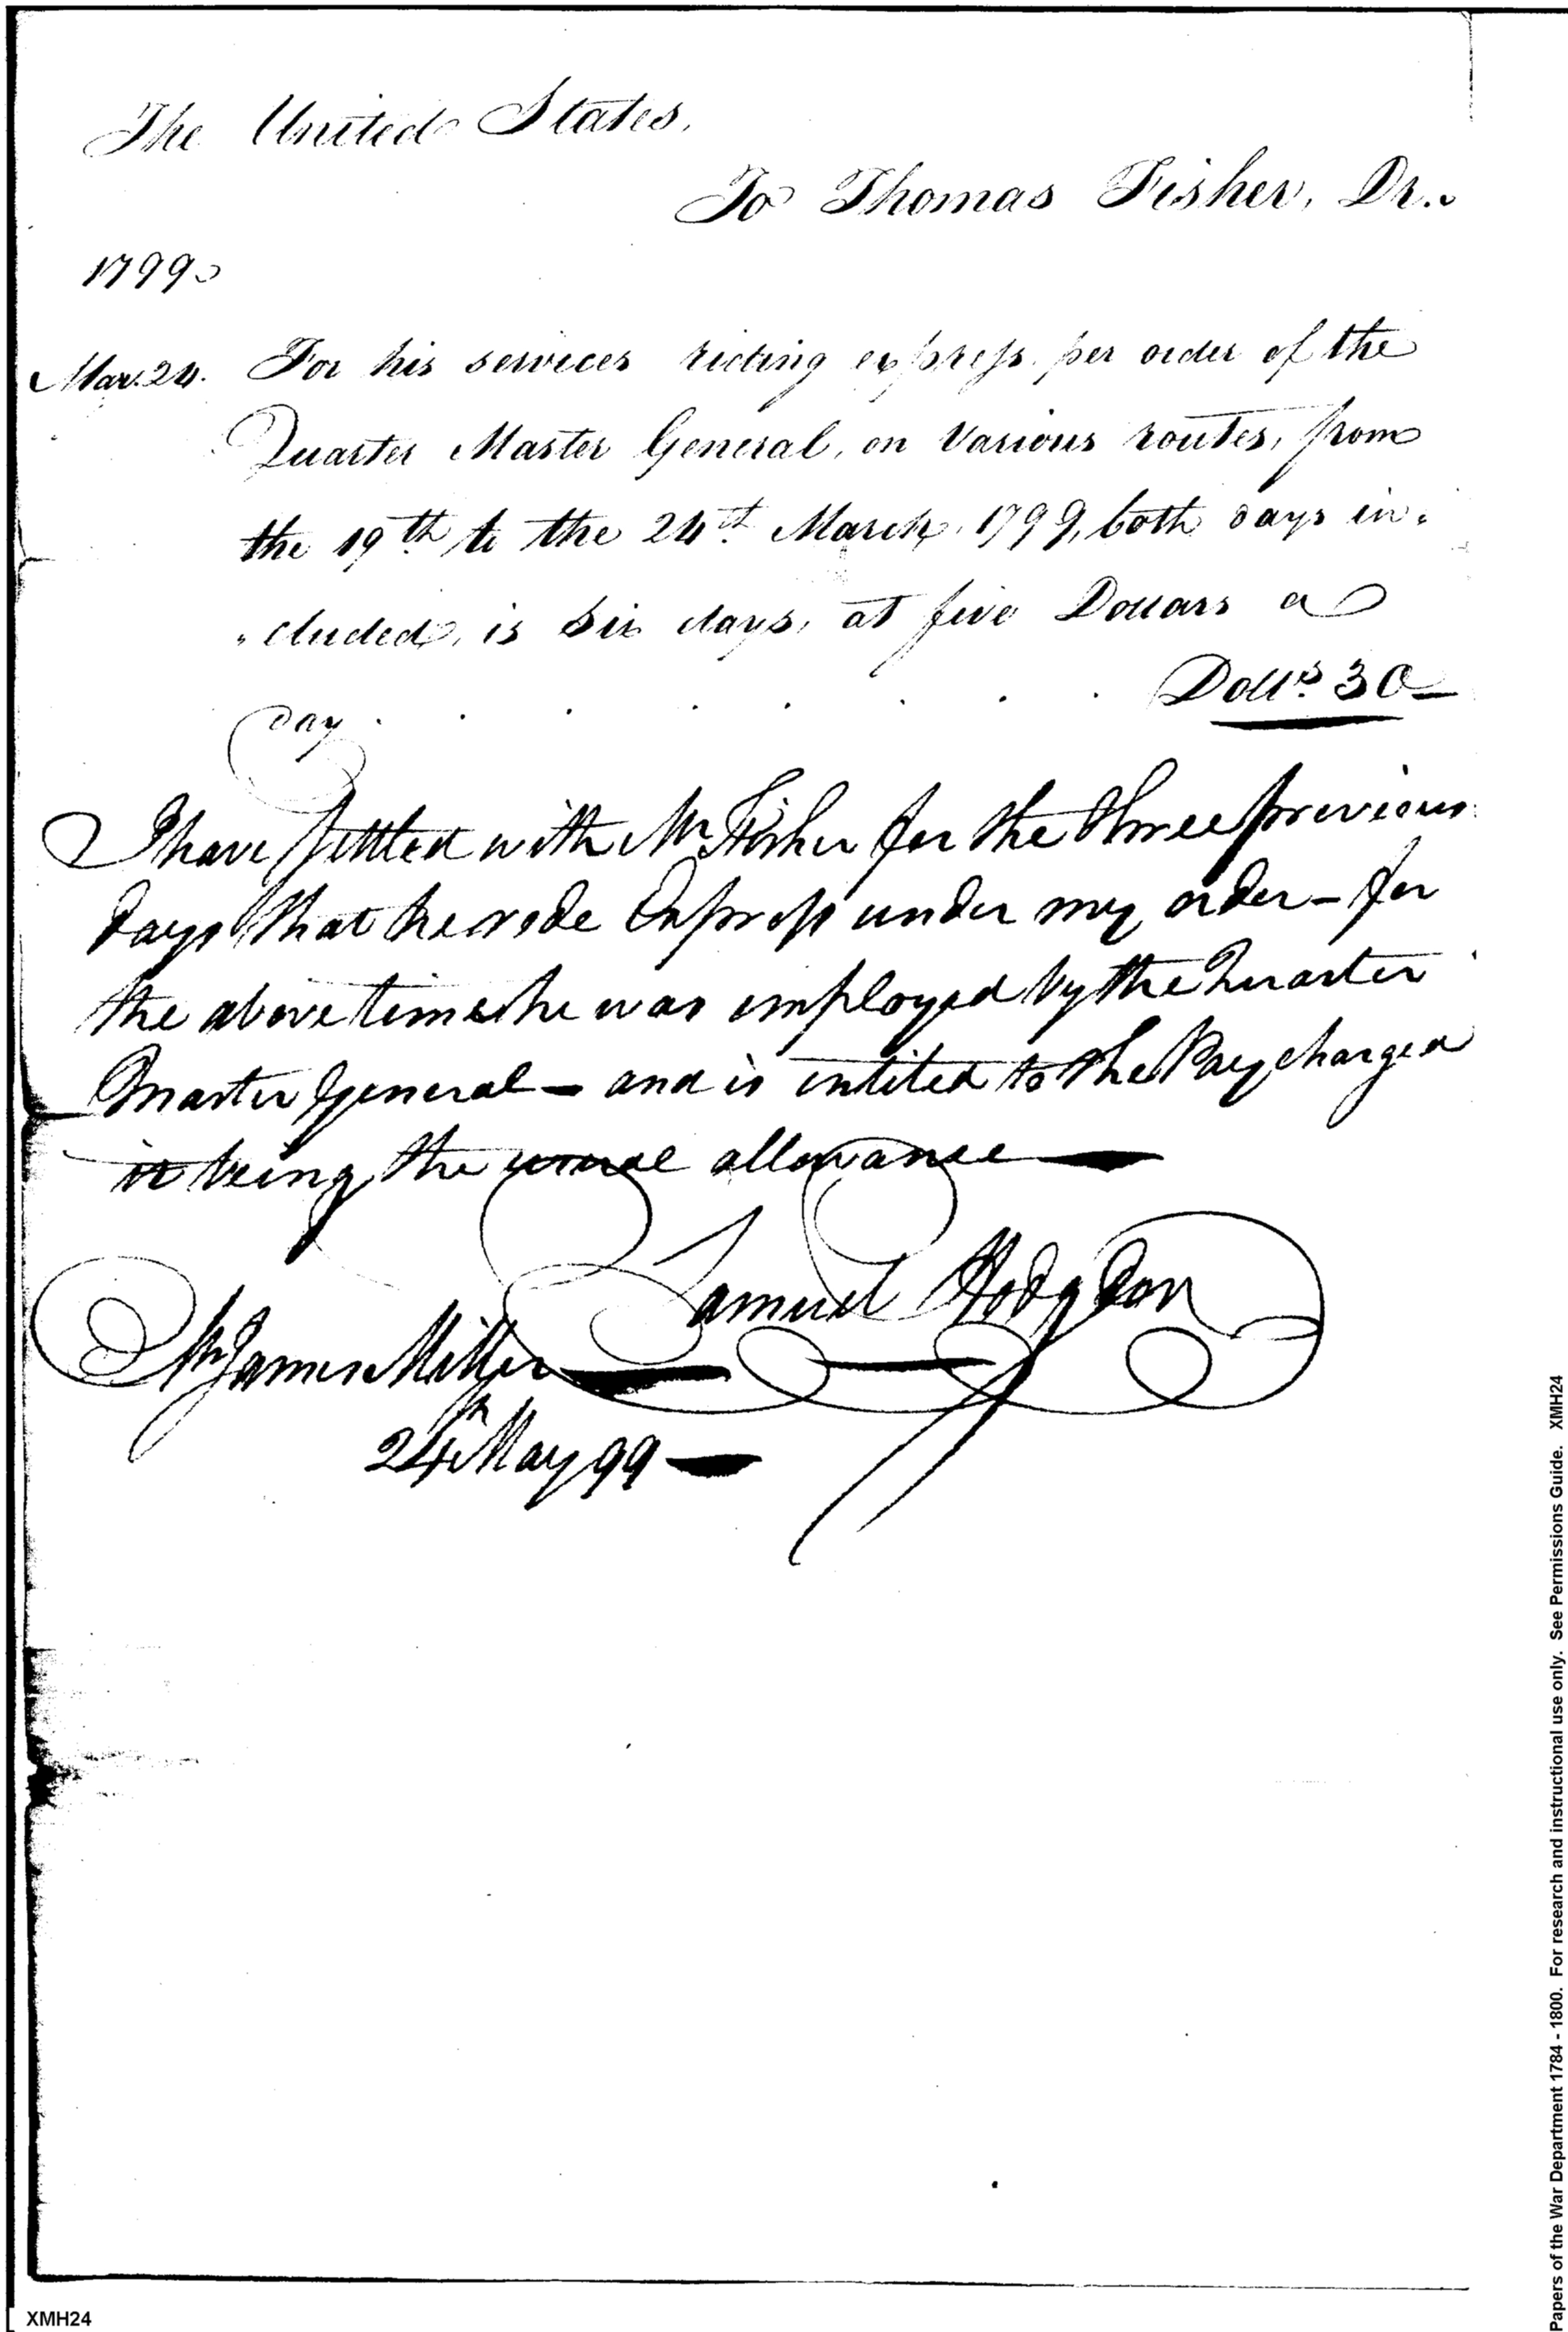 The United States,
To Thomas Fisher, Dr.
1799
Mar. 24. For his services riding express per order of the
Quarter Master General, on Various routes, from
the 19th to the 24th March, 1799, both days in-
cluded, is Six days, at five Dollars a
day . . . . . . . Dolls. 30
I have settled with Mr Fisher for the three previous
days that he rode Express under my order - for
the above time he was employed by the Quarter
Master General - and is intitled to the Pay charged
it being the usual allowance
Samuel Hodgdon
Mr James Miller
24th May 99
Papers of the War Department 1784 - 1800. For research and instructional use only. See Permissions Guide. XMH24
XMH24